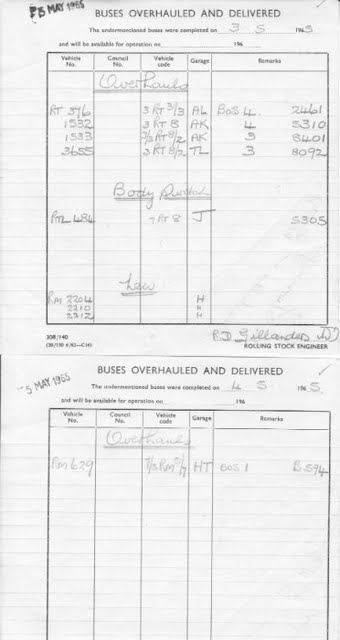 5 MAY 1965
BUSES OVERHAULED AND DELIVERED
The undermentioned buses were completed on 3 5 1965
and will be available for operation on 196
Vehicle No. Council No. Vehicle code Garage Remarks
Overhauls
RT 376 3 RT 3/3 AL BOS 4. 2461
1532 3 RT 8 AK 4 5310
1533 3/3 RT 8/2 AK 3 8401
3655 3 RT 8/2 TL 3 8092
Body
RTL 484 7 RT 8 J 5305
New
RM 2204 H
2210 H
2212 H
308/140
R.D. Gillanders
ROLLING STOCK ENGINEER
5 MAY 1965
BUSES OVERHAULED AND DELIVERED
The undermentioned buses were completed on 4 5 1965.
and will be available for operation on 196
Vehicle No. Council No. Vehicle code Garage Remarks
Overhauls
RM 629 HT BOS 1 B.594